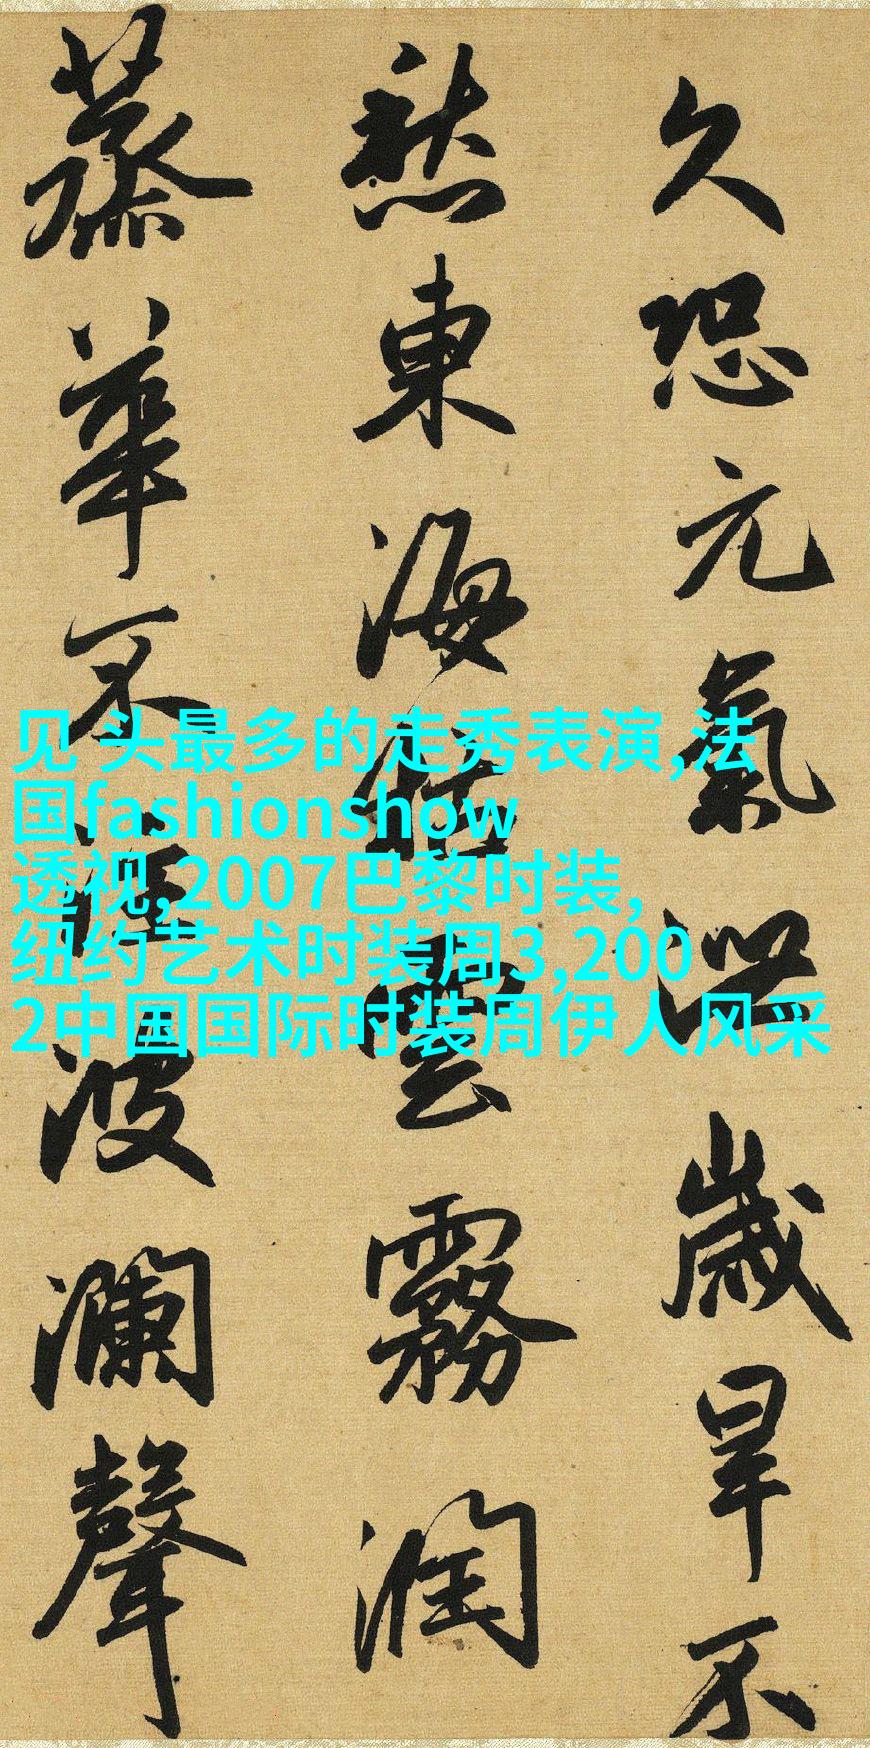 久恐元氣泄歲旱不
愁東海枯雲霧潤
蒸華不注波瀾聲
见 头最多的走秀表演,法
国fashionshow
透视,2007巴黎时装,
纽约艺术时装周3,200
2中国国际时装周伊人风采